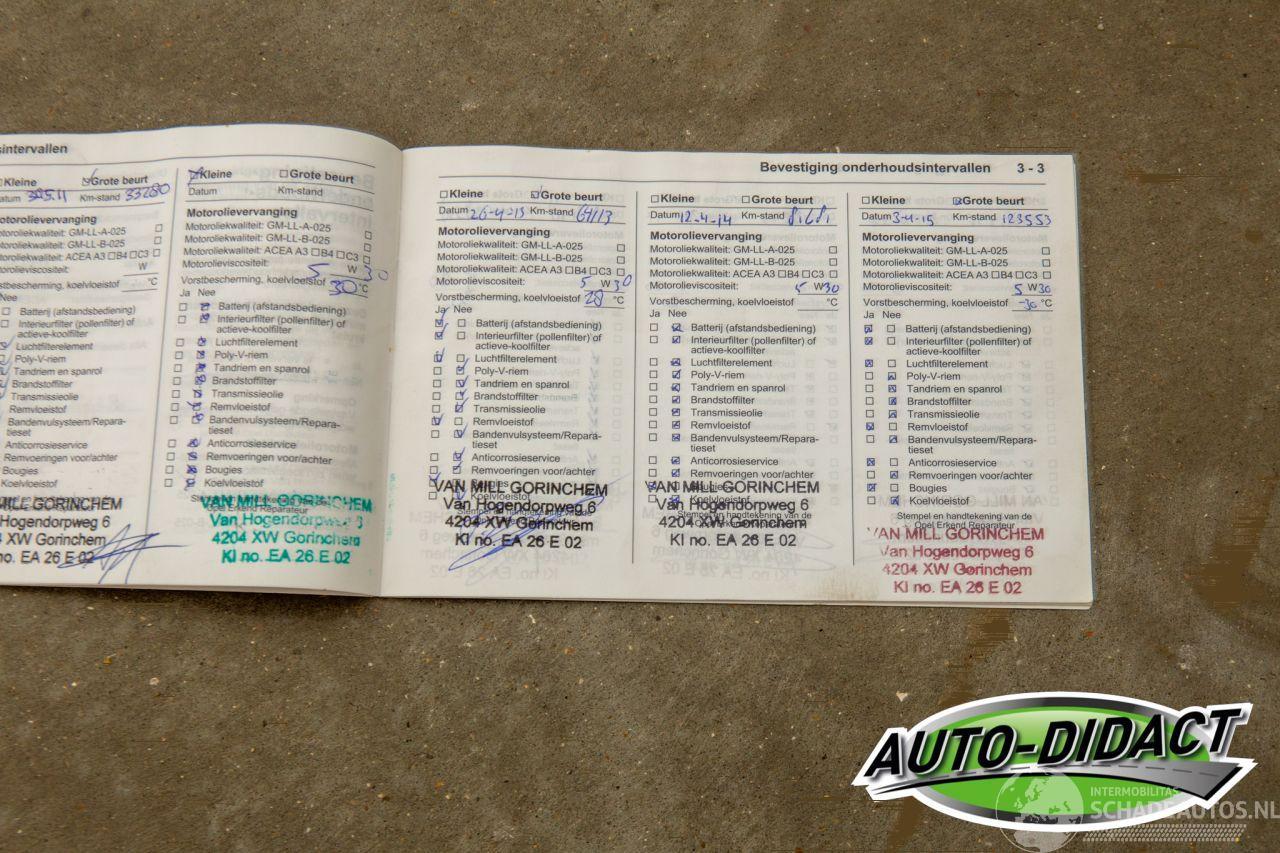 sintervallen
Kleine Grote beurt
atum Km-stand 33280
otorolievervanging
otoroliekwaliteit: GM-LL-A-025
otoroliekwaliteit: GM-LL-B-025
otoroliekwaliteit: ACEA A3 B4 C3
otorolieviscositeit: W
stbescherming, koelvloeistof °C
Nee
Batterij (afstandsbediening)
Interieurfilter (pollenfilter) of
actieve-koolfilter
Luchtfilterelement
Poly-V-riem
Tandriem en spanrol
Brandstoffilter
Transmissieolie
Remvloeistof
Bandenvulsysteem/Repara-
tieset
Anticorrosieservice
Remvoeringen voor/achter
Bougies
Koelvloeistof
MILL GORINCHEM
Hogendorpweg 6
4 XW Gorinchem
no. EA 26 E 02
Kleine Grote beurt
Datum Km-stand
Motorolievervanging
Motoroliekwaliteit: GM-LL-A-025
Motoroliekwaliteit: GM-LL-B-025
Motoroliekwaliteit: ACEA A3 B4 C3
Motorolieviscositeit: 5 W 30
Vorstbescherming, koelvloeistof 30 °C
Ja Nee
Batterij (afstandsbediening)
Interieurfilter (pollenfilter) of
actieve-koolfilter
Luchtfilterelement
Poly-V-riem
Tandriem en spanrol
Brandstoffilter
Transmissieolie
Remvloeistof
Bandenvulsysteem/Repara-
tieset
Anticorrosieservice
Remvoeringen voor/achter
Bougies
Koelvloeistof
Opel Erkend Reparateur
VAN MILL GORINCHEM
Van Hogendorpweg 6
4204 XW Gorinchem
KI no. EA 26 E 02
Bevestiging onderhoudsintervallen 3 - 3
Kleine Grote beurt
Datum 26-4-13 Km-stand
Motorolievervanging
Motoroliekwaliteit: GM-LL-A-025
Motoroliekwaliteit: GM-LL-B-025
Motoroliekwaliteit: ACEA A3 B4 C3
Motorolieviscositeit: 5 W 30
Vorstbescherming, koelvloeistof 28 °C
Ja Nee
Batterij (afstandsbediening)
Interieurfilter (pollenfilter) of
actieve-koolfilter
Luchtfilterelement
Poly-V-riem
Tandriem en spanrol
Brandstoffilter
Transmissieolie
Remvloeistof
Bandenvulsysteem/Repara-
tieset
Anticorrosieservice
Remvoeringen voor/achter
Bougies
Koelvloeistof
Stempel en handtekening van de
VAN MILL GORINCHEM
Van Hogendorpweg 6
4204 XW Gorinchem
KI no. EA 26 E 02
Kleine Grote beurt
Datum 12-4-14 Km-stand
Motorolievervanging
Motoroliekwaliteit: GM-LL-A-025
Motoroliekwaliteit: GM-LL-B-025
Motoroliekwaliteit: ACEA A3 B4 C3
Motorolieviscositeit: 5 W 30
Vorstbescherming, koelvloeistof °C
Ja Nee
Batterij (afstandsbediening)
Interieurfilter (pollenfilter) of
actieve-koolfilter
Luchtfilterelement
Poly-V-riem
Tandriem en spanrol
Brandstoffilter
Transmissieolie
Remvloeistof
Bandenvulsysteem/Repara-
tieset
Anticorrosieservice
Remvoeringen voor/achter
Bougies
Koelvloeistof
Stempel en handtekening van de
Opel Erkend Reparateur
VAN MILL GORINCHEM
Van Hogendorpweg 6
4204 XW Gorinchem
KI no. EA 26 E 02
Kleine Grote beurt
Datum 3-4-15 Km-stand 123553
Motorolievervanging
Motoroliekwaliteit: GM-LL-A-025
Motoroliekwaliteit: GM-LL-B-025
Motoroliekwaliteit: ACEA A3 B4 C3
Motorolieviscositeit: 5 W 30
Vorstbescherming, koelvloeistof -30 °C
Ja Nee
Batterij (afstandsbediening)
Interieurfilter (pollenfilter) of
actieve-koolfilter
Luchtfilterelement
Poly-V-riem
Tandriem en spanrol
Brandstoffilter
Transmissieolie
Remvloeistof
Bandenvulsysteem/Repara-
tieset
Anticorrosieservice
Remvoeringen voor/achter
Bougies
Koelvloeistof
Stempel en handtekening van de
Opel Erkend Reparateur
VAN MILL GORINCHEM
Van Hogendorpweg 6
4204 XW Gorinchem
KI no. EA 26 E 02
AUTO-DIDACT
INTERMOBILITAS
SCHADEAUTOS.NL